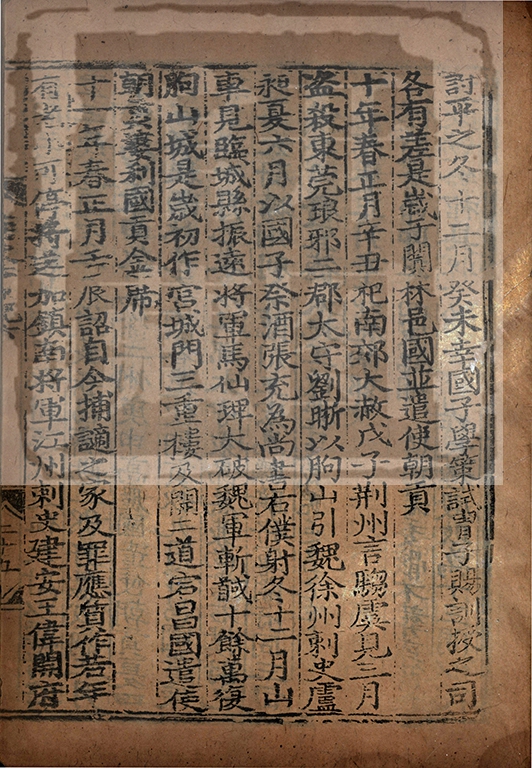 討平之冬十二月癸未幸國子學策試冑子賜訓授之司
各有差是歲于闐林邑國並遣使朝貢
十年春正月辛丑祀南郊大赦戊子荆州言騶虞見三月
盗殺東莞琅邪二郡太守劉晣以朐山引魏徐州刺史盧
昶夏六月以國子祭酒張充為尚書右僕射冬十二月山
車見臨城縣振遠將軍馬仙琕大破魏軍斬馘十餘萬復
朐山城是歲初作宮城門三重樓及開二道宕昌國遣使
朝貢婆利國貢金席
十一年春正月壬辰詔自今捕謫之家及罪應質作若年
有老小可停將送加鎮南將軍江州刺史建安王偉開府